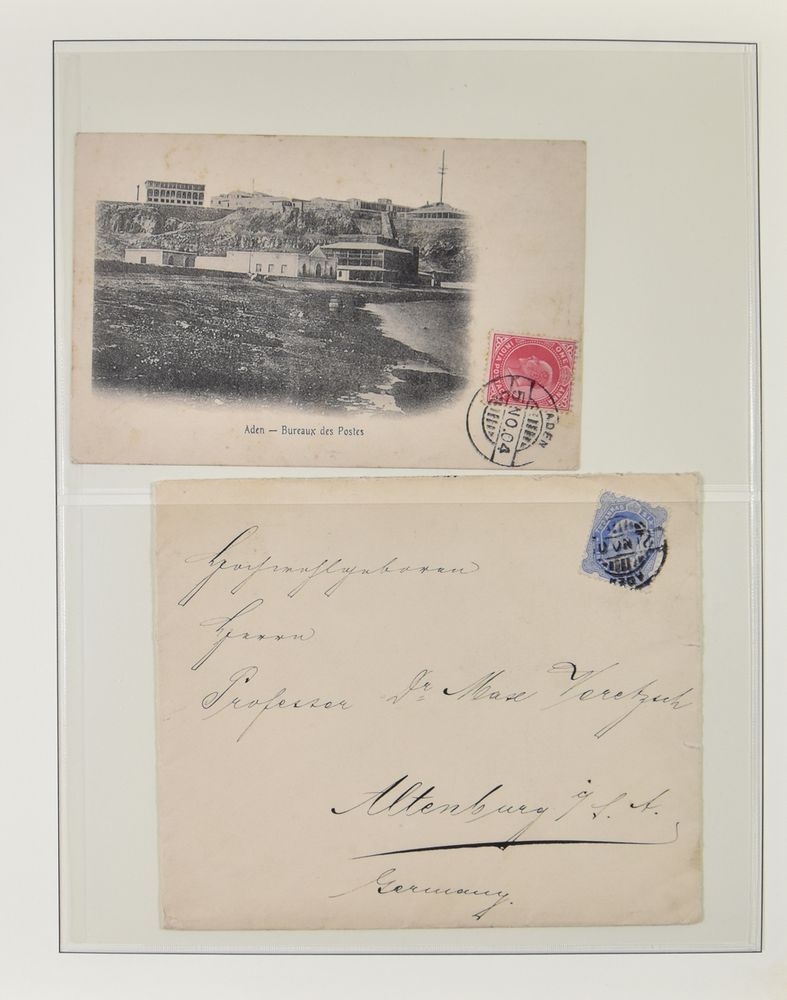 INDIA POSTAGE
ONE ANNA
ADEN
5 NO. 04
Aden — Bureaux des Postes
NO
ADEN
Hochwohlgeboren
Herrn
Professor Dr Max Voretzsch
Altenburg i/S. A.
Germany.